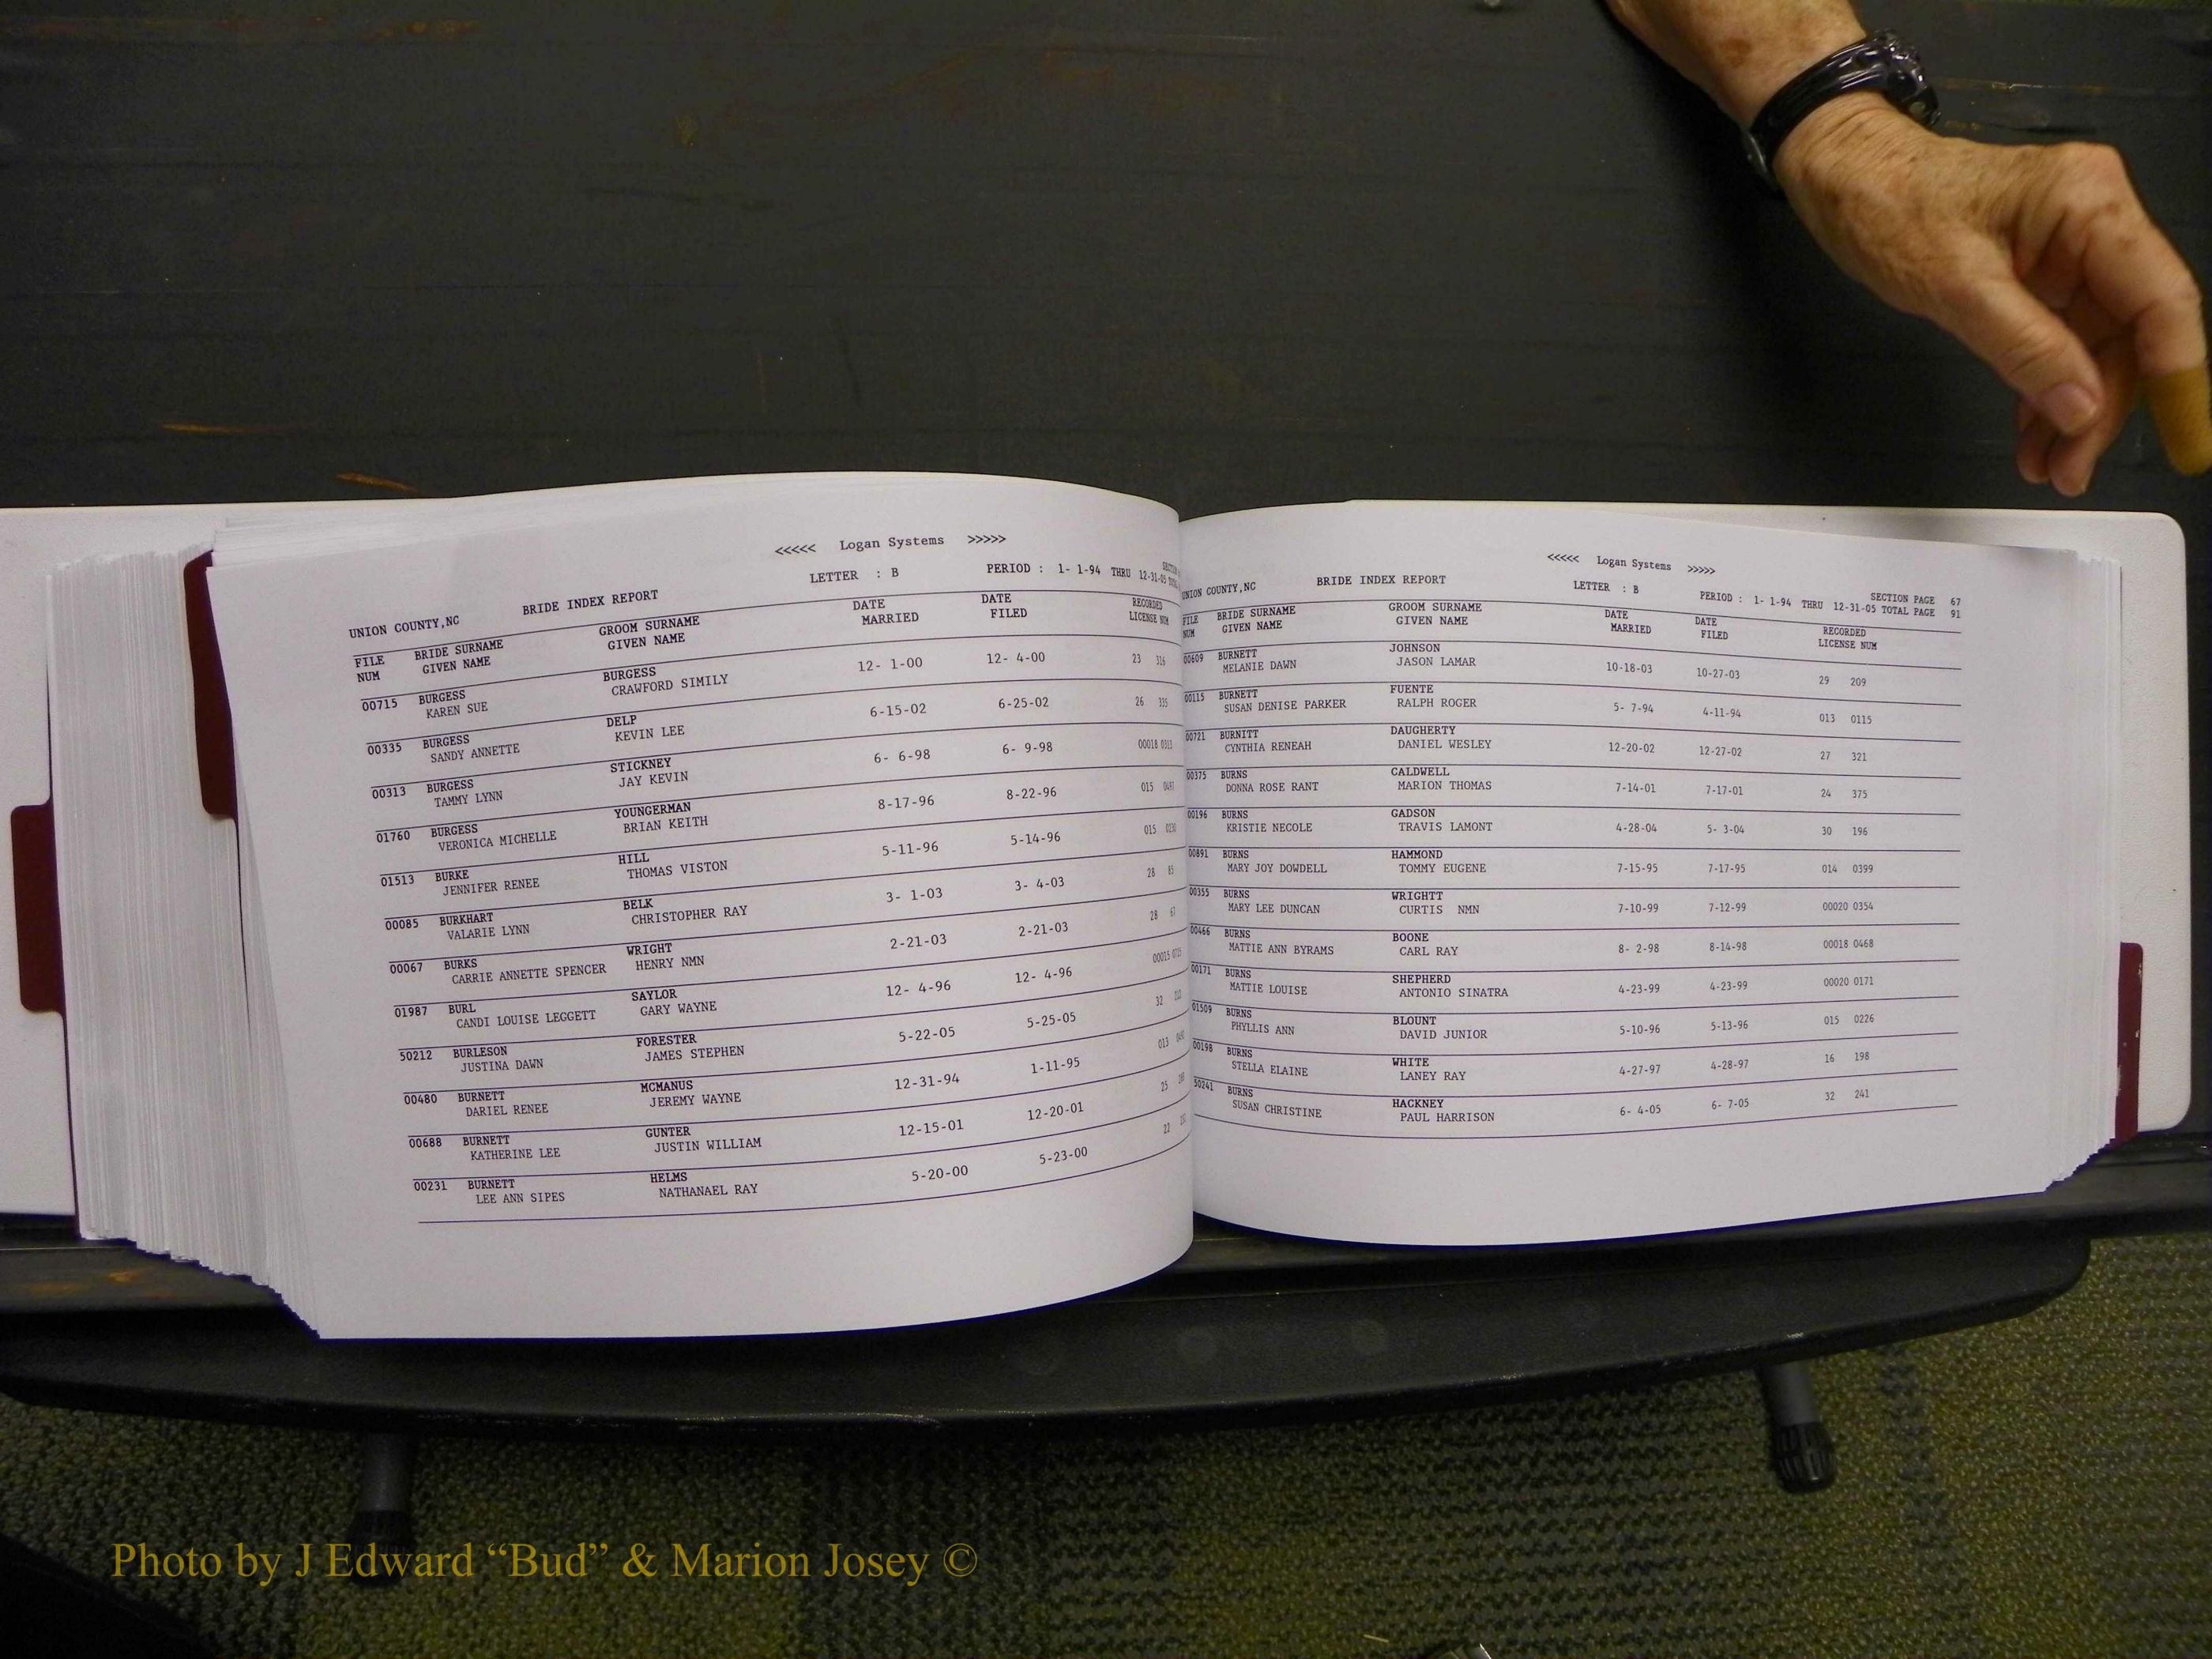 <<<<< Logan Systems >>>>>
UNION COUNTY,NC BRIDE INDEX REPORT LETTER : B PERIOD : 1- 1-94 THRU 12-31-05
FILE BRIDE SURNAME GROOM SURNAME DATE DATE RECORDED
NUM GIVEN NAME GIVEN NAME MARRIED FILED LICENSE NUM
00715 BURGESS BURGESS 12- 1-00 12- 4-00 23 316
KAREN SUE CRAWFORD SIMILY
00335 BURGESS DELP 6-15-02 6-25-02 26 335
SANDY ANNETTE KEVIN LEE
00313 BURGESS STICKNEY 6- 6-98 6- 9-98 00018 0313
TAMMY LYNN JAY KEVIN
01760 BURGESS YOUNGERMAN 8-17-96 8-22-96 015
VERONICA MICHELLE BRIAN KEITH
01513 BURKE HILL 5-11-96 5-14-96 015
JENNIFER RENEE THOMAS VISTON
00085 BURKHART BELK 3- 1-03 3- 4-03 28 85
VALARIE LYNN CHRISTOPHER RAY
00067 BURKS WRIGHT 2-21-03 2-21-03 28 67
CARRIE ANNETTE SPENCER HENRY NMN
01987 BURL SAYLOR 12- 4-96 12- 4-96 00015
CANDI LOUISE LEGGETT GARY WAYNE
50212 BURLESON FORESTER 5-22-05 5-25-05 32
JUSTINA DAWN JAMES STEPHEN
00480 BURNETT MCMANUS 12-31-94 1-11-95 013
DARIEL RENEE JEREMY WAYNE
00688 BURNETT GUNTER 12-15-01 12-20-01 25
KATHERINE LEE JUSTIN WILLIAM
00231 BURNETT HELMS 5-20-00 5-23-00 22
LEE ANN SIPES NATHANAEL RAY
<<<<< Logan Systems >>>>>
UNION COUNTY,NC BRIDE INDEX REPORT LETTER : B PERIOD : 1- 1-94 THRU 12-31-05 SECTION PAGE 67
TOTAL PAGE 91
FILE BRIDE SURNAME GROOM SURNAME DATE DATE RECORDED
NUM GIVEN NAME GIVEN NAME MARRIED FILED LICENSE NUM
00609 BURNETT JOHNSON 10-18-03 10-27-03 29 209
MELANIE DAWN JASON LAMAR
00115 BURNETT FUENTE 5- 7-94 4-11-94 013 0115
SUSAN DENISE PARKER RALPH ROGER
00721 BURNITT DAUGHERTY 12-20-02 12-27-02 27 321
CYNTHIA RENEAH DANIEL WESLEY
00375 BURNS CALDWELL 7-14-01 7-17-01 24 375
DONNA ROSE RANT MARION THOMAS
00196 BURNS GADSON 4-28-04 5- 3-04 30 196
KRISTIE NECOLE TRAVIS LAMONT
00891 BURNS HAMMOND 7-15-95 7-17-95 014 0399
MARY JOY DOWDELL TOMMY EUGENE
00355 BURNS WRIGHTT 7-10-99 7-12-99 00020 0354
MARY LEE DUNCAN CURTIS NMN
00466 BURNS BOONE 8- 2-98 8-14-98 00018 0468
MATTIE ANN BYRAMS CARL RAY
00171 BURNS SHEPHERD 4-23-99 4-23-99 00020 0171
MATTIE LOUISE ANTONIO SINATRA
01509 BURNS BLOUNT 5-10-96 5-13-96 015 0226
PHYLLIS ANN DAVID JUNIOR
00198 BURNS WHITE 4-27-97 4-28-97 16 198
STELLA ELAINE LANEY RAY
50241 BURNS HACKNEY 6- 4-05 6- 7-05 32 241
SUSAN CHRISTINE PAUL HARRISON
Photo by J Edward “Bud” & Marion Josey ©